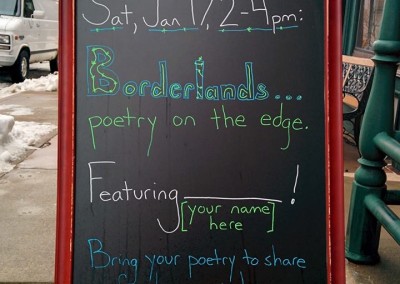 Sat, Jan 17, 2-4pm:
Borderlands...
poetry on the edge.
Featuring ________!
[your name
here]
Bring your poetry to share